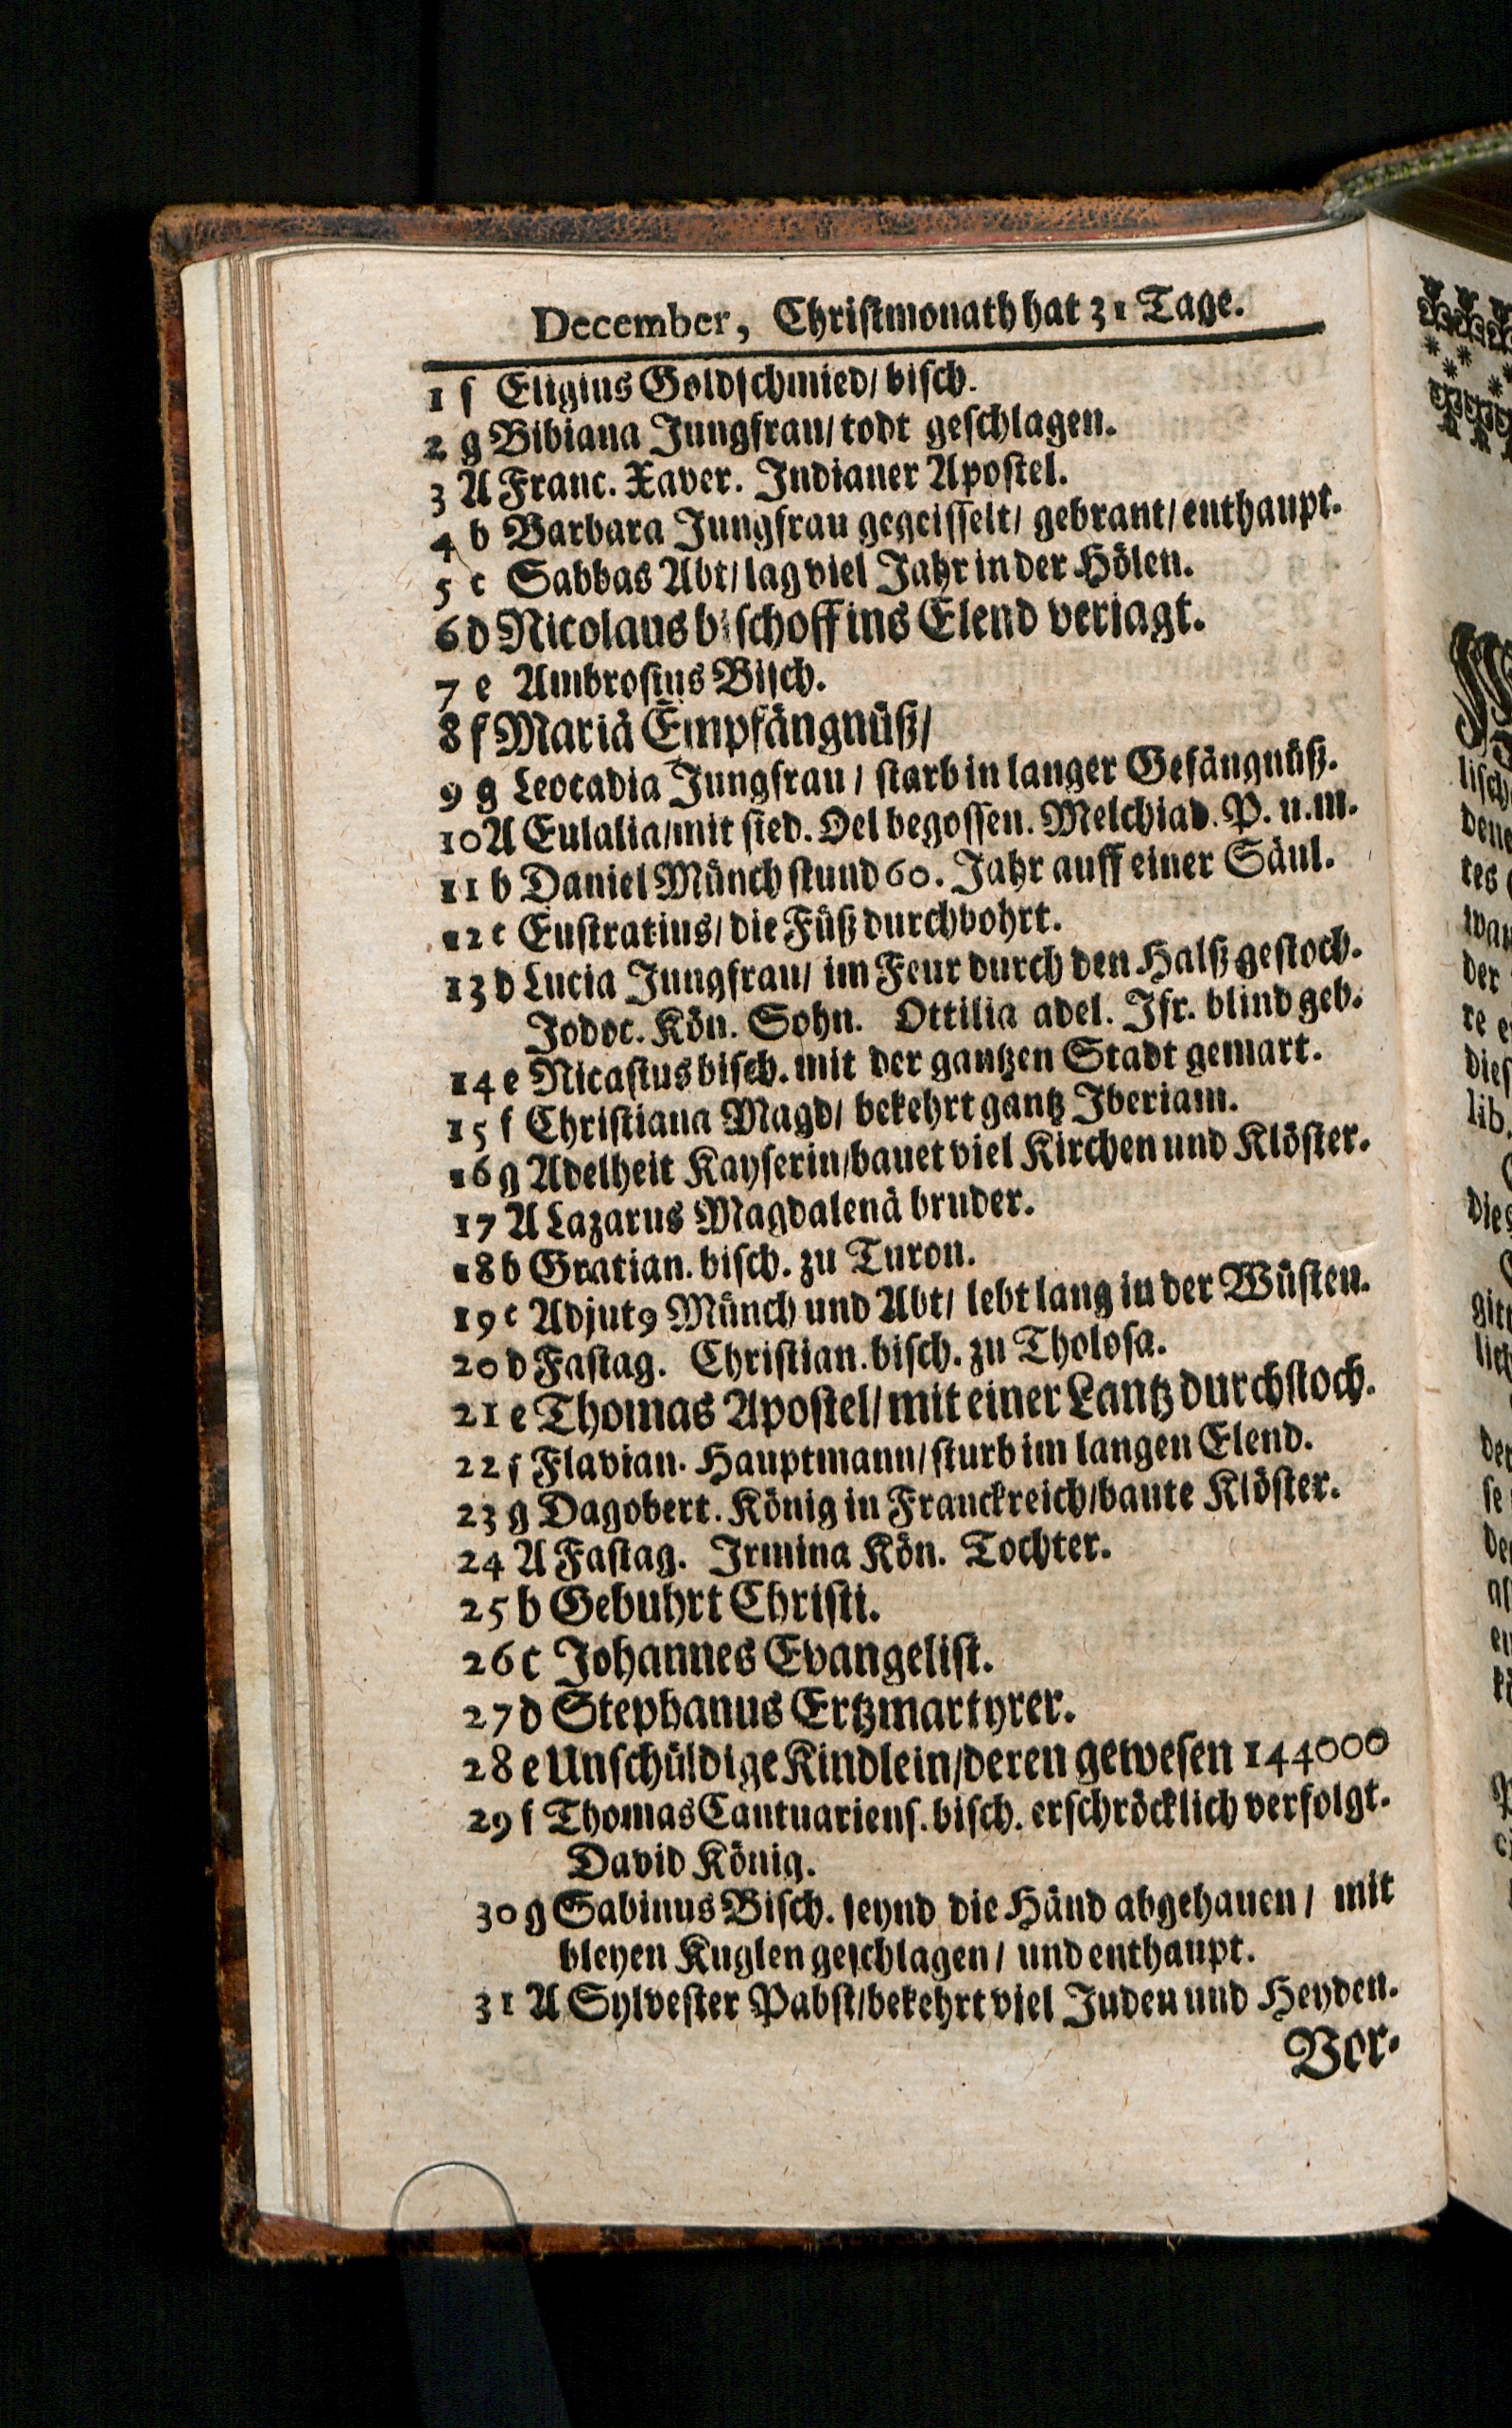 December, Christmonath hat 31 Tage.
1 f Eligius Goldschmied/ bisch.
2 g Bibiana Jungfrau/ todt geschlagen.
3 A Franc. Xaver. Indianer Apostel.
4 b Barbara Jungfrau gegeisselt/ gebrant/ enthaupt.
5 c Sabbas Abt/ lag viel Jahr in der Hölen.
6 d Nicolaus bischoff ins Elend verjagt.
7 e Ambrosius Bisch.
8 f Mariä Empfängnüß/
9 g Leocadia Jungfrau / starb in langer Gefängnüß.
10 A Eulalia/mit sied. Oel begossen. Melchiad. P. u. m.
11 b Daniel Münch stund 60. Jahr auff einer Säul.
12 c Eustratius/ die Füß durchbohrt.
13 d Lucia Jungfrau/ im Feur durch den Halß gestoch.
Jodoc. Kön. Sohn. Ottilia adel. Jfr. blind geb.
14 e Nicasius bisch. mit der gantzen Stadt gemart.
15 f Christiana Magd/ bekehrt gantz Iberiam.
16 g Adelheit Kayserin/bauet viel Kirchen und Klöster.
17 A Lazarus Magdalenä bruder.
18 b Gratian. bisch. zu Turon.
19 c Adjut9 Münch und Abt/ lebt lang in der Wüsten.
20 d Fastag. Christian. bisch. zu Tholosa.
21 e Thomas Apostel/ mit einer Lantz durchstoch.
22 f Flavian. Hauptmann/ sturb im langen Elend.
23 g Dagobert. König in Franckreich/baute Klöster.
24 A Fastag. Irmina Kön. Tochter.
25 b Gebuhrt Christi.
26 c Johannes Evangelist.
27 d Stephanus Ertzmartyrer.
28 e Unschüldige Kindlein/deren gewesen 144000
29 f Thomas Cantuariens. bisch. erschröcklich verfolgt.
David König.
30 g Sabinus Bisch. seynd die Händ abgehauen / mit
bleyen Kuglen geschlagen / und enthaupt.
31 A Sylvester Pabst/bekehrt viel Juden und Heyden.
Vor-